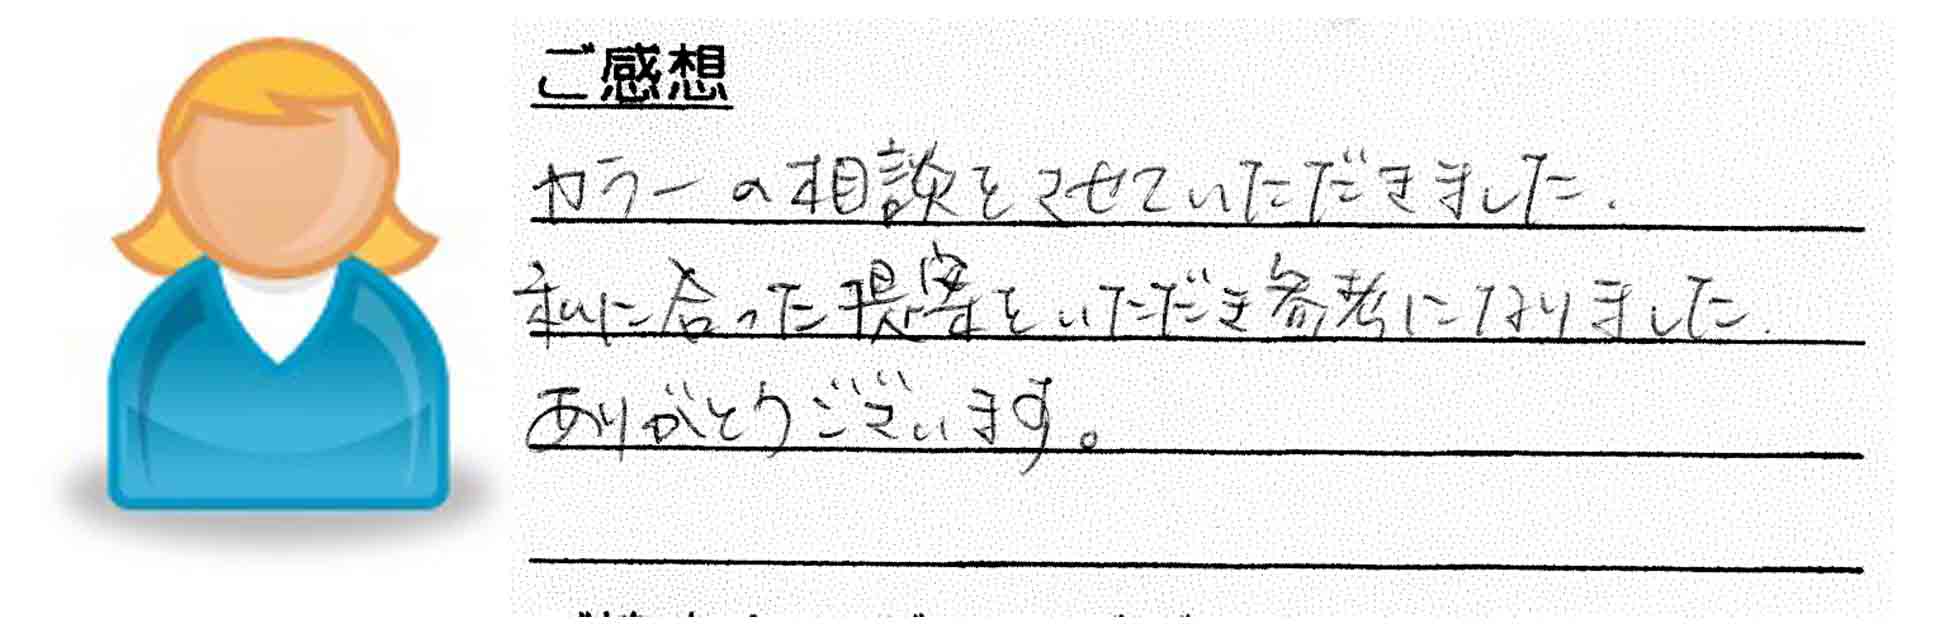 ご感想
カラーの相談をさせていただきました.
私に合った提案をいただき参考になりました.
ありがとうございます。